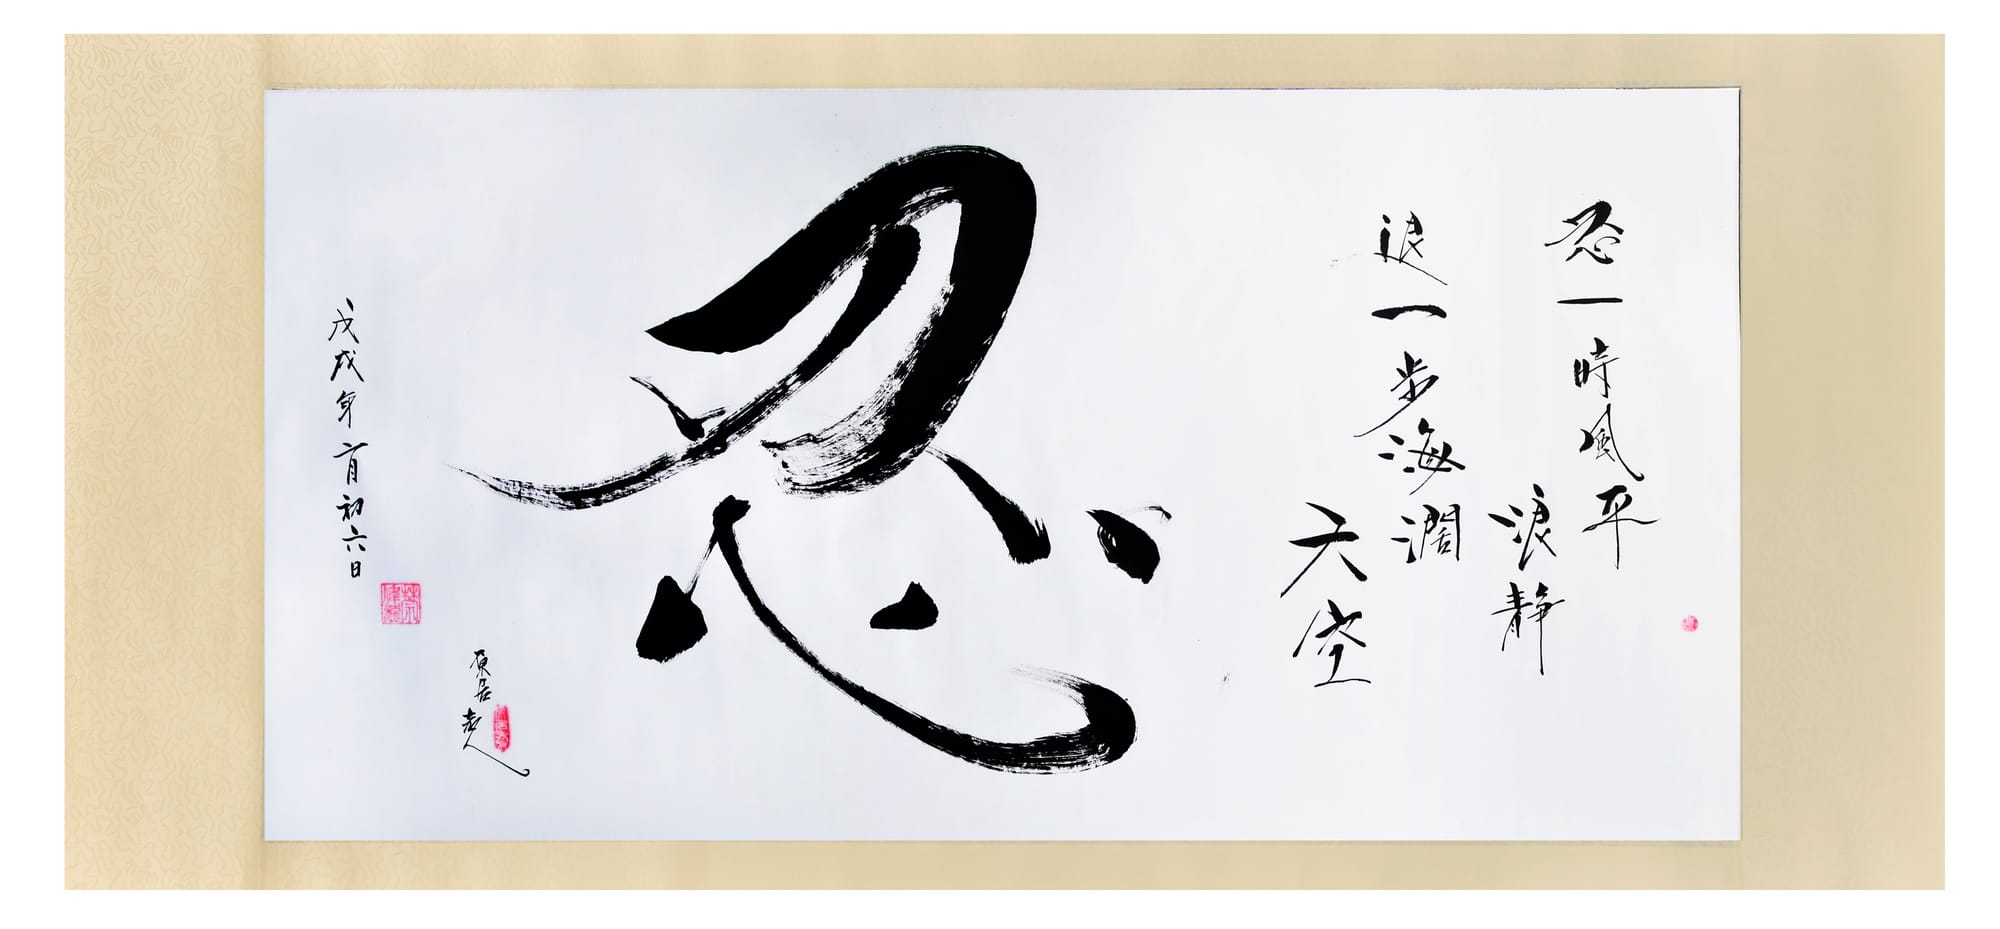 忍一時風平
浪靜
退一步海濶
天空
忍
戊戌年六月初六日
居老人